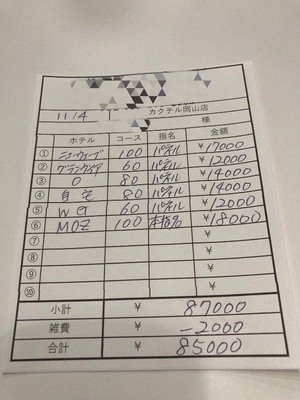 カクテル岡山店
11/4 様
ホテル コース 指名 金額
① ニューウェーブ 100 パネル ¥17000
② グランヴィア 60 パネル ¥12000
③ O 80 パネル ¥14000
④ 自宅 80 パネル ¥14000
⑤ WG 60 パネル ¥12000
⑥ MOZ 100 本指名 ¥18000
⑦
⑧
⑨
⑩
小計 ¥ 87000
雑費 ¥ -2000
合計 ¥ 85000